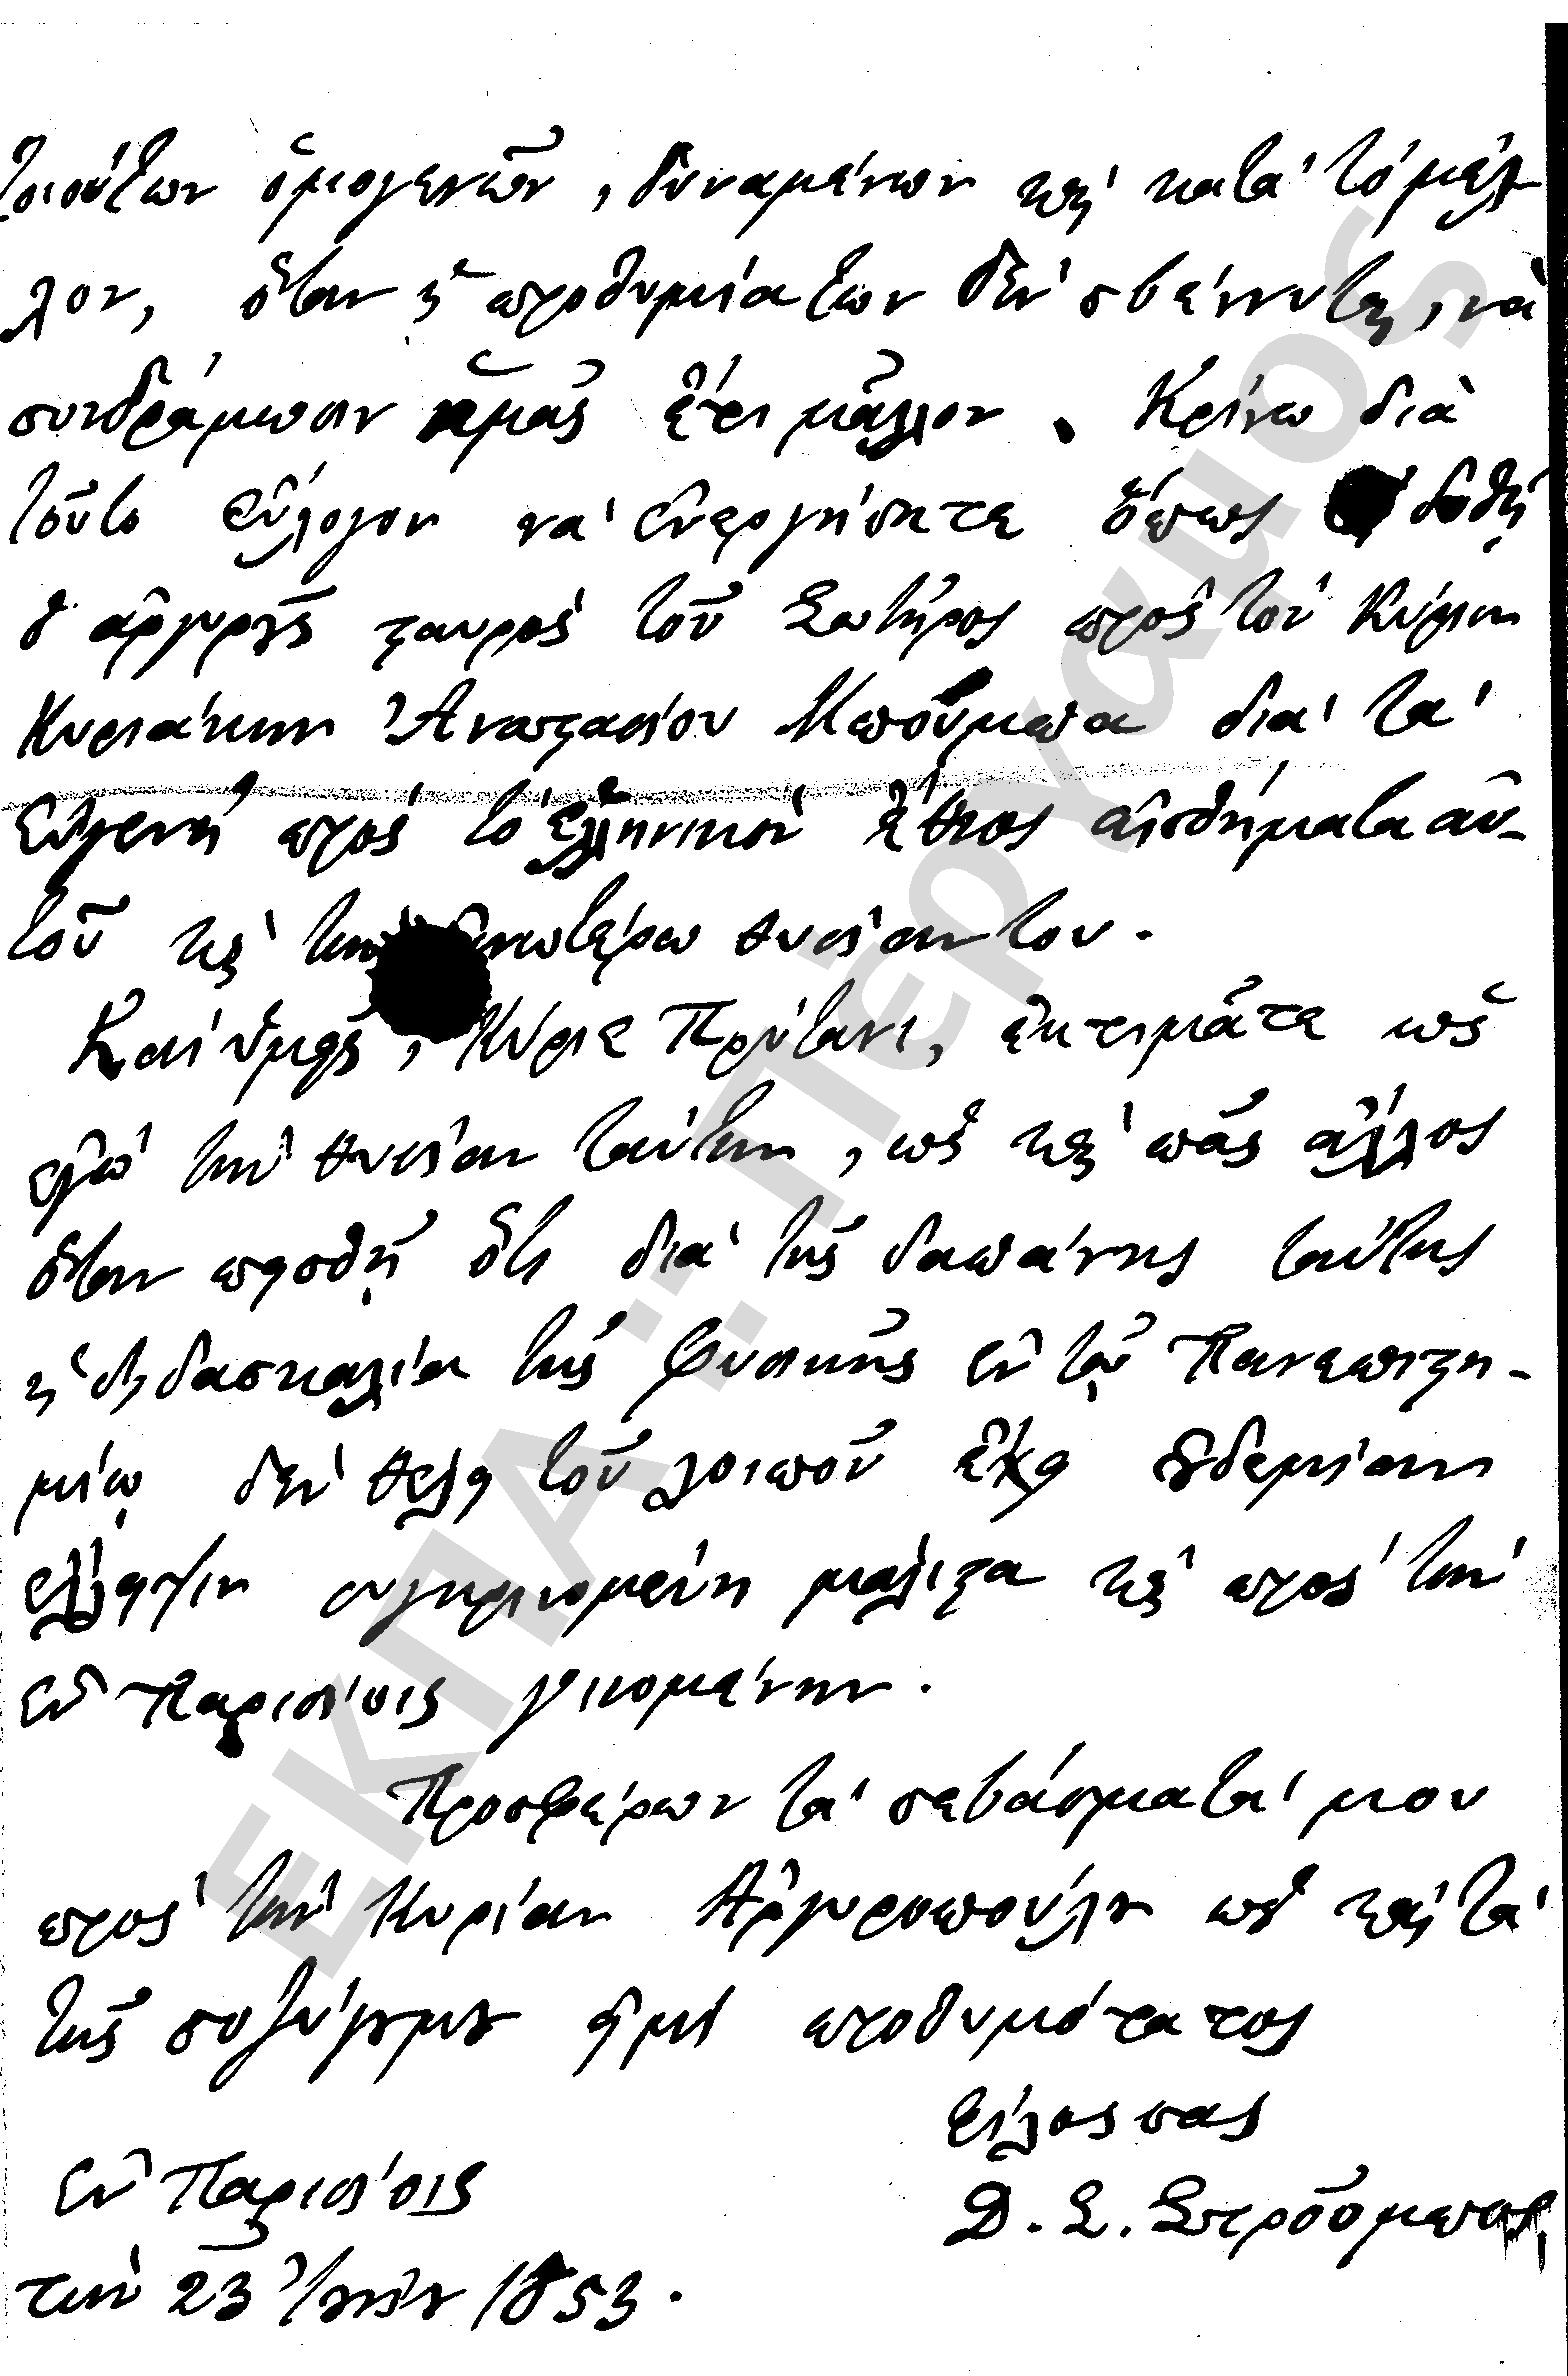 τοιούτων ὁμογενῶν, δυναμένων καὶ κατὰ τὸ μέλ-
λον, ὅταν ἡ προθυμία των δὲν σβέννυται, νὰ
συνδράμωσιν ἡμᾶς ἔτι μᾶλλον. Κρίνω διὰ
τοῦτο εὔλογον νὰ ἐνεργήσητε ὅπως δοθῇ
ὁ ἀργυροῦς σταυρὸς τοῦ Σωτῆρος πρὸς τὸν Κύριον
Κυριάκον Ἀναστασίου Μπούμπα διὰ τὰ
εὐγενῆ πρὸς τὸ ἑλληνικὸν ἔθνος αἰσθήματα αὐ-
τοῦ καὶ τὴν ἀνωτέρω θυσίαν του.
Καὶ ὑμεῖς, Κύριε Πρύτανι, ἐκτιμᾶτε ὡς
ἐγὼ τὴν θυσίαν ταύτην, ὡς καὶ πᾶς ἄλλος
ὅταν πεισθῇ ὅτι διὰ τῆς δαπάνης ταύτης
ἡ διδασκαλία τῆς Φυσικῆς ἐν τῷ Πανεπιστη-
μίῳ δὲν θέλει τοῦ λοιποῦ ἔχει οὐδεμίαν
ἔλλειψιν συγκρινομένη μάλιστα καὶ πρὸς τὴν
ἐν Παρισίοις γινομένην.
Προσφέρων τὰ σεβάσματά μου
πρὸς τὴν Κυρίαν Ἀργυροπούλου ὡς καὶ τὰ
τῆς συζύγου μου εἰμὶ προθυμότατος
φίλος σας
Δ. Σ. Στροῦμπος
Ἐν Παρισίοις
τὴν 23 Ἰουνίου 1853.